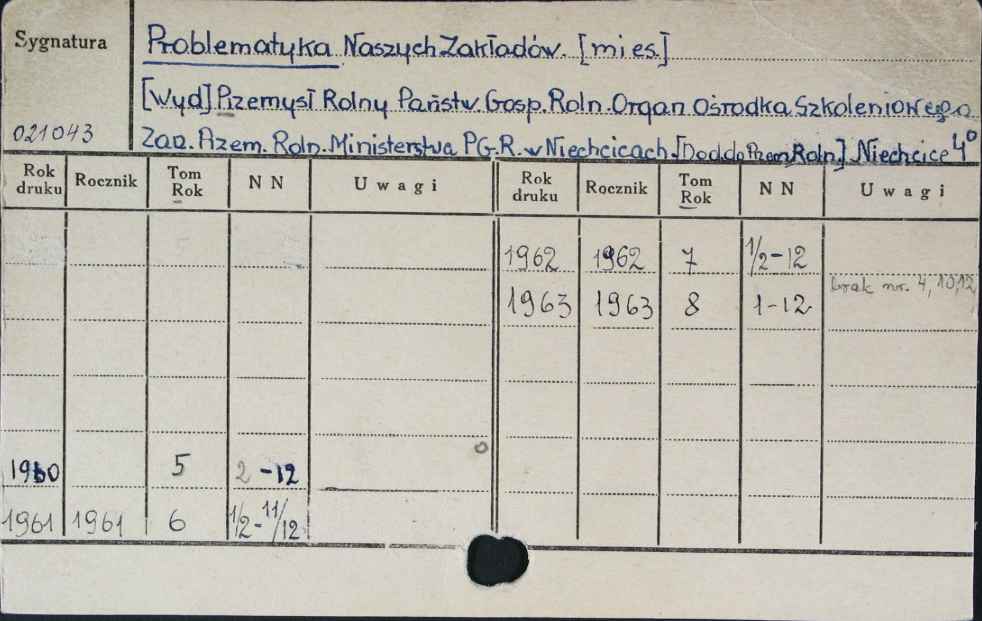 Sygnatura
Problematyka Naszych Zakładów. [mies.]
[Wyd] Przemysł Rolny Państw. Gosp. Roln. Organ Ośrodka Szkoleniowego
021043
Zao. Przem. Roln. Ministerstwa P.G.R. w Niechcicach. [Dod do Przem. Roln.] Niechcice 4°
Rok druku Rocznik Tom Rok N N Uwagi Rok druku Rocznik Tom Rok N N Uwagi
1962 1962 7 1/2-12
brak nr. 4, 10, 12
1963 1963 8 1-12
1960 5 2-12
1961 1961 6 1/2-11/12